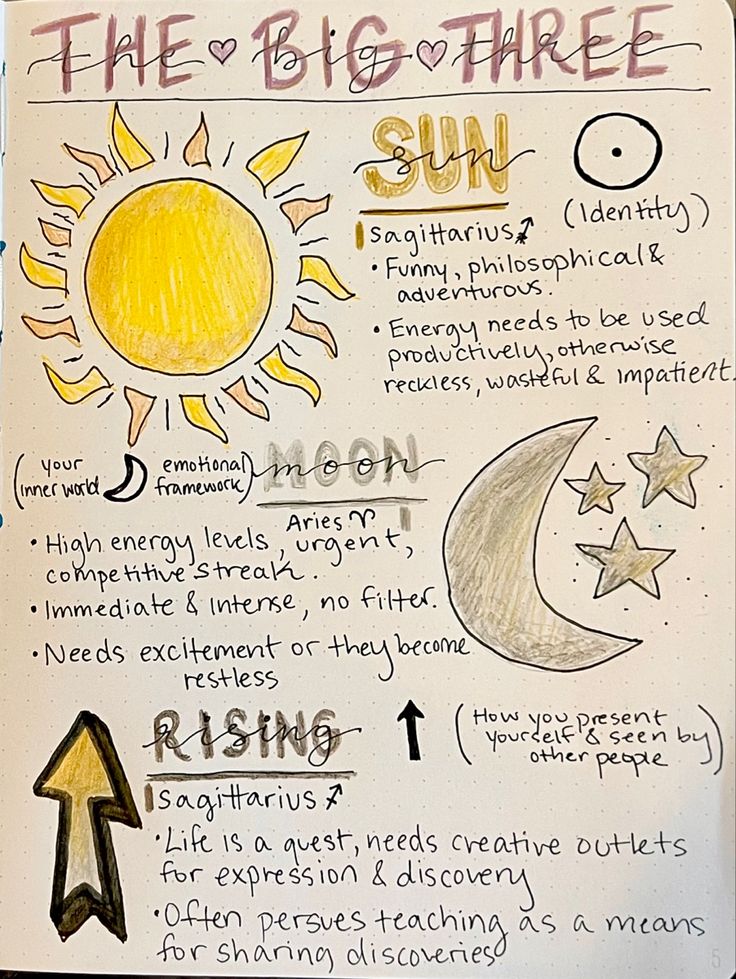 THE ♡ BIG ♡ THREE
the big three
SUN
sun
(Identity)
Sagittarius ♐
• Funny, philosophical &
adventurous.
• Energy needs to be used
productively, otherwise
reckless, wasteful & impatient.
(your
inner world
emotional
framework)
MOON
moon
Aries ♈
• High energy levels, urgent,
competitive streak.
• Immediate & Intense, no filter.
• Needs excitement or they become
restless
RISING
rising
(How you present
yourself & seen by
other people)
Sagittarius ♐
• Life is a quest, needs creative outlets
for expression & discovery
• Often persues teaching as a means
for sharing discoveries
5